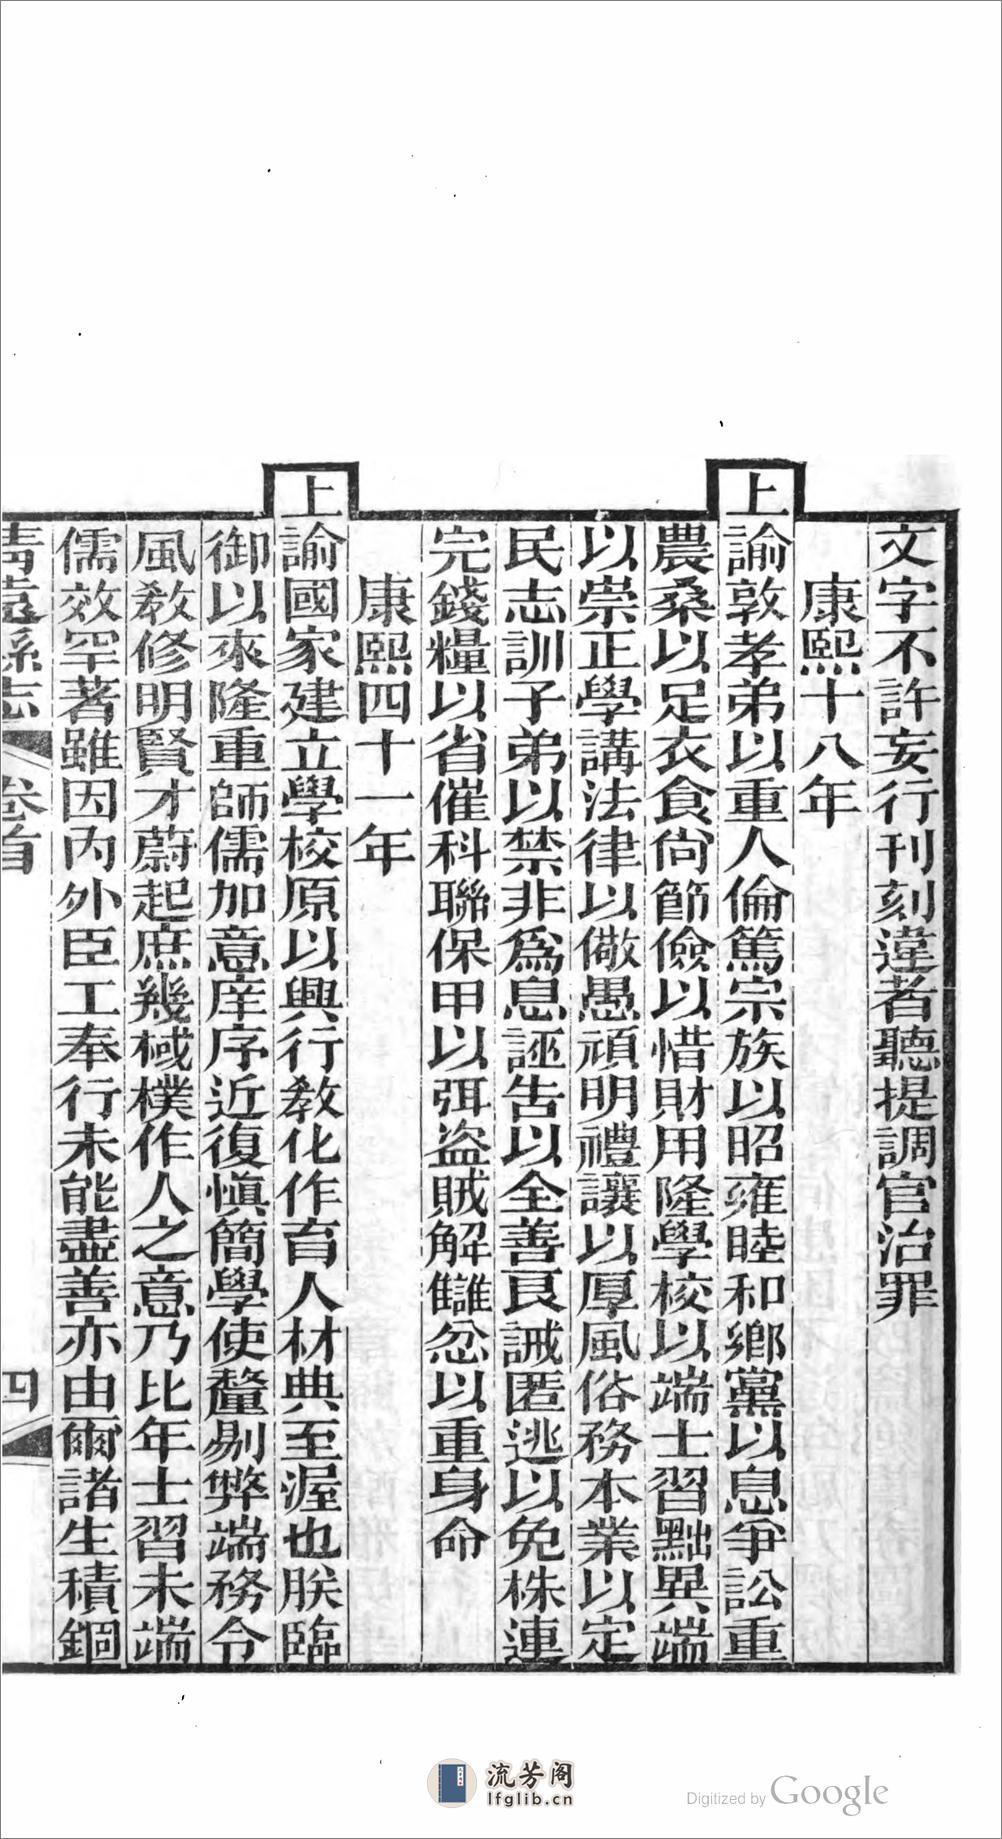 文字不許妄行刊刻違者聽提調官治罪
康熙十八年
上諭敦孝弟以重人倫篤宗族以昭雍睦和鄉黨以息爭訟重
農桑以足衣食尙節儉以惜財用隆學校以端士習黜異端
以崇正學講法律以儆愚頑明禮讓以厚風俗務本業以定
民志訓子弟以禁非爲息誣告以全善良誡匿逃以免株連
完錢糧以省催科聯保甲以弭盜賊解讎忿以重身命
康熙四十一年
上諭國家建立學校原以興行敎化作育人材典至渥也朕臨
御以來隆重師儒加意庠序近復愼簡學使釐剔弊端務令
風敎修明賢才蔚起庶幾棫樸作人之意乃比年士習未端
儒效罕著雖因內外臣工奉行未能盡善亦由爾諸生積錮
淸遠縣志 卷首 四
流芳阁
lfglib.cn
Digitized by Google